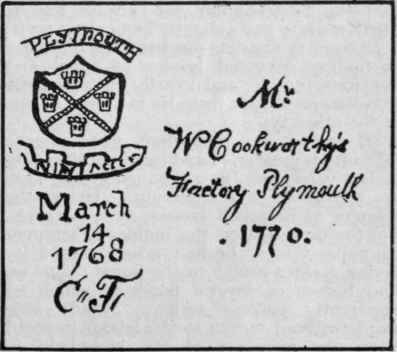 PLYMOUTH
March
14
1768
C" F,
Mr
W Cookworthy's
Factory Plymouth
. 1770.